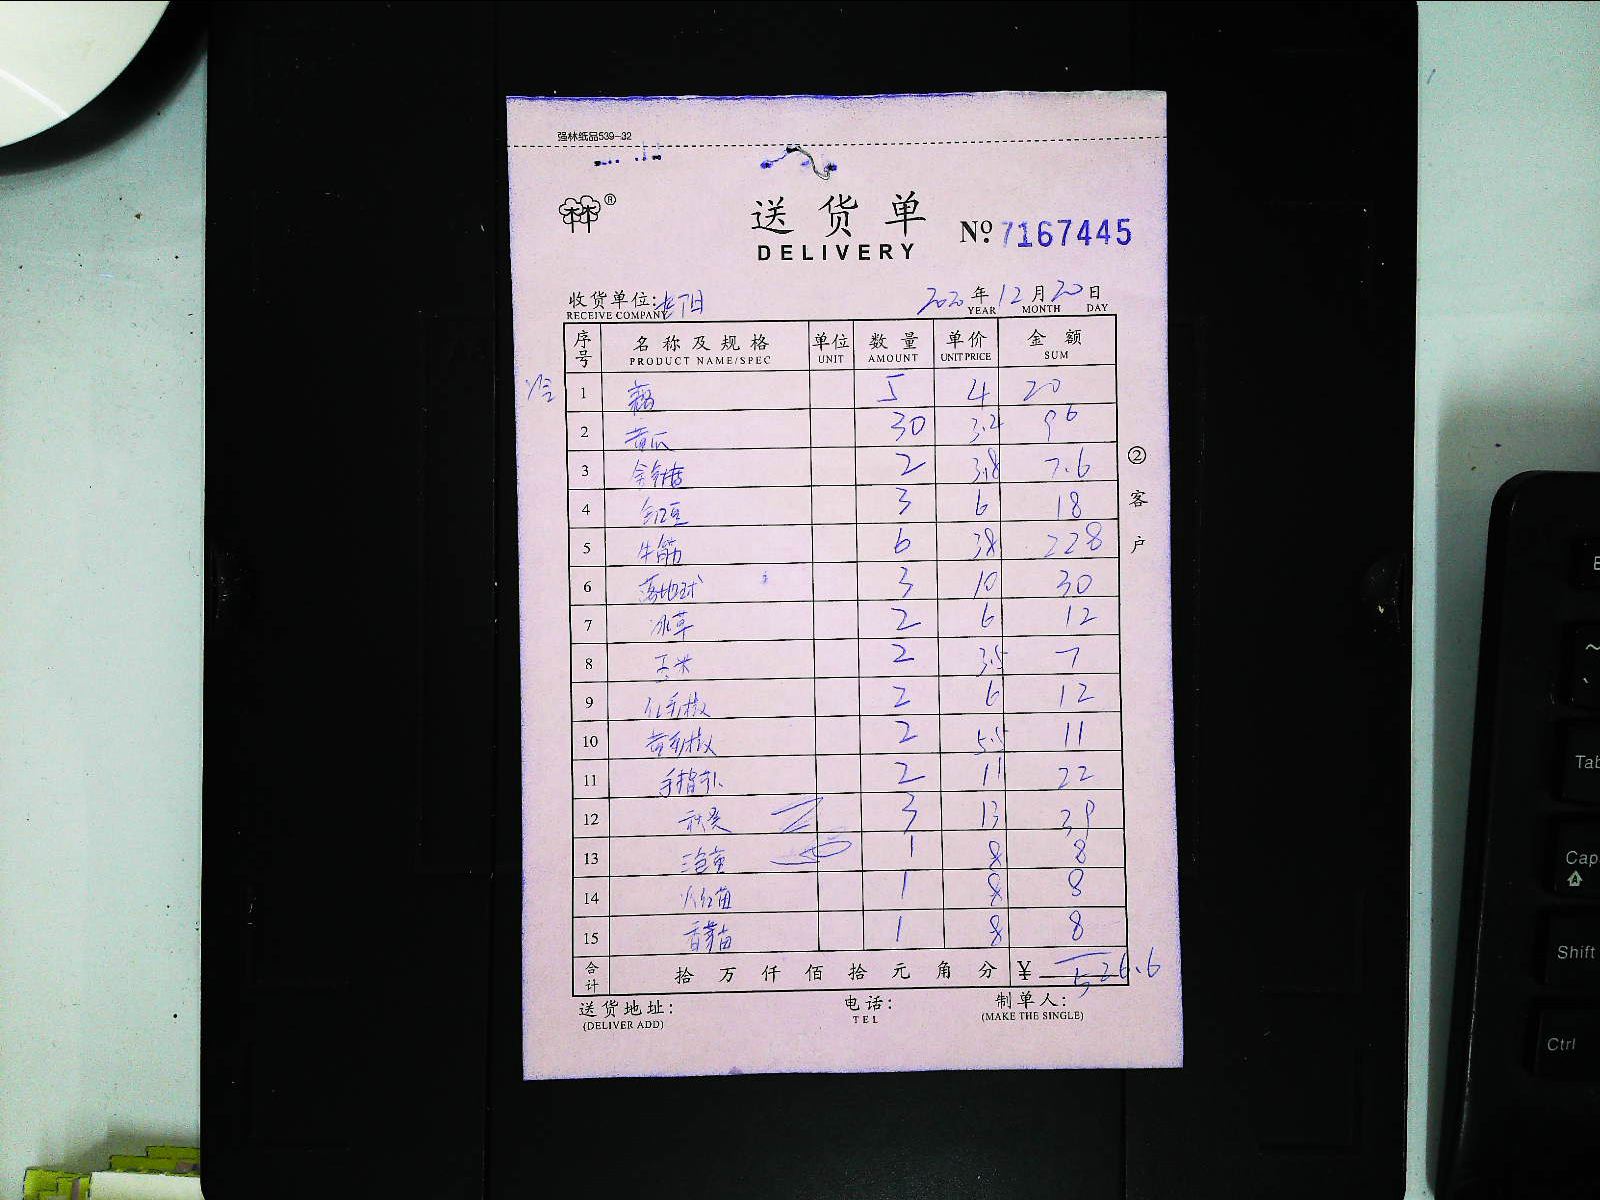 强林纸品539-32
林®
送货单
DELIVERY
№ 7167445
收货单位:
RECEIVE COMPANY
2020年12月20日
YEAR MONTH DAY
序号 名称及规格 单位 数量 单价 金额
PRODUCT NAME/SPEC UNIT AMOUNT UNIT PRICE SUM
冷
1 藕 5 4 20
2 黄瓜 30 3.2 96
3 金针菇 2 3.8 7.6
4 豆 3 6 18
5 牛筋 6 38 228
6 3 10 30
7 冰草 2 6 12
8 玉米 2 3.5 7
9 红彩椒 2 6 12
10 黄彩椒 2 5.5 11
11 手指 2 11 22
12 秋葵 3 13 39
13 三色堇 1 8 8
14 苗 1 8 8
15 苗 1 8 8
合计 拾万仟佰拾元角分 ¥ 526.6
②客户
送货地址: 电话: 制单人:
(DELIVER ADD) TEL (MAKE THE SINGLE)
E
~
Tab
Cap
Shift
Ctrl